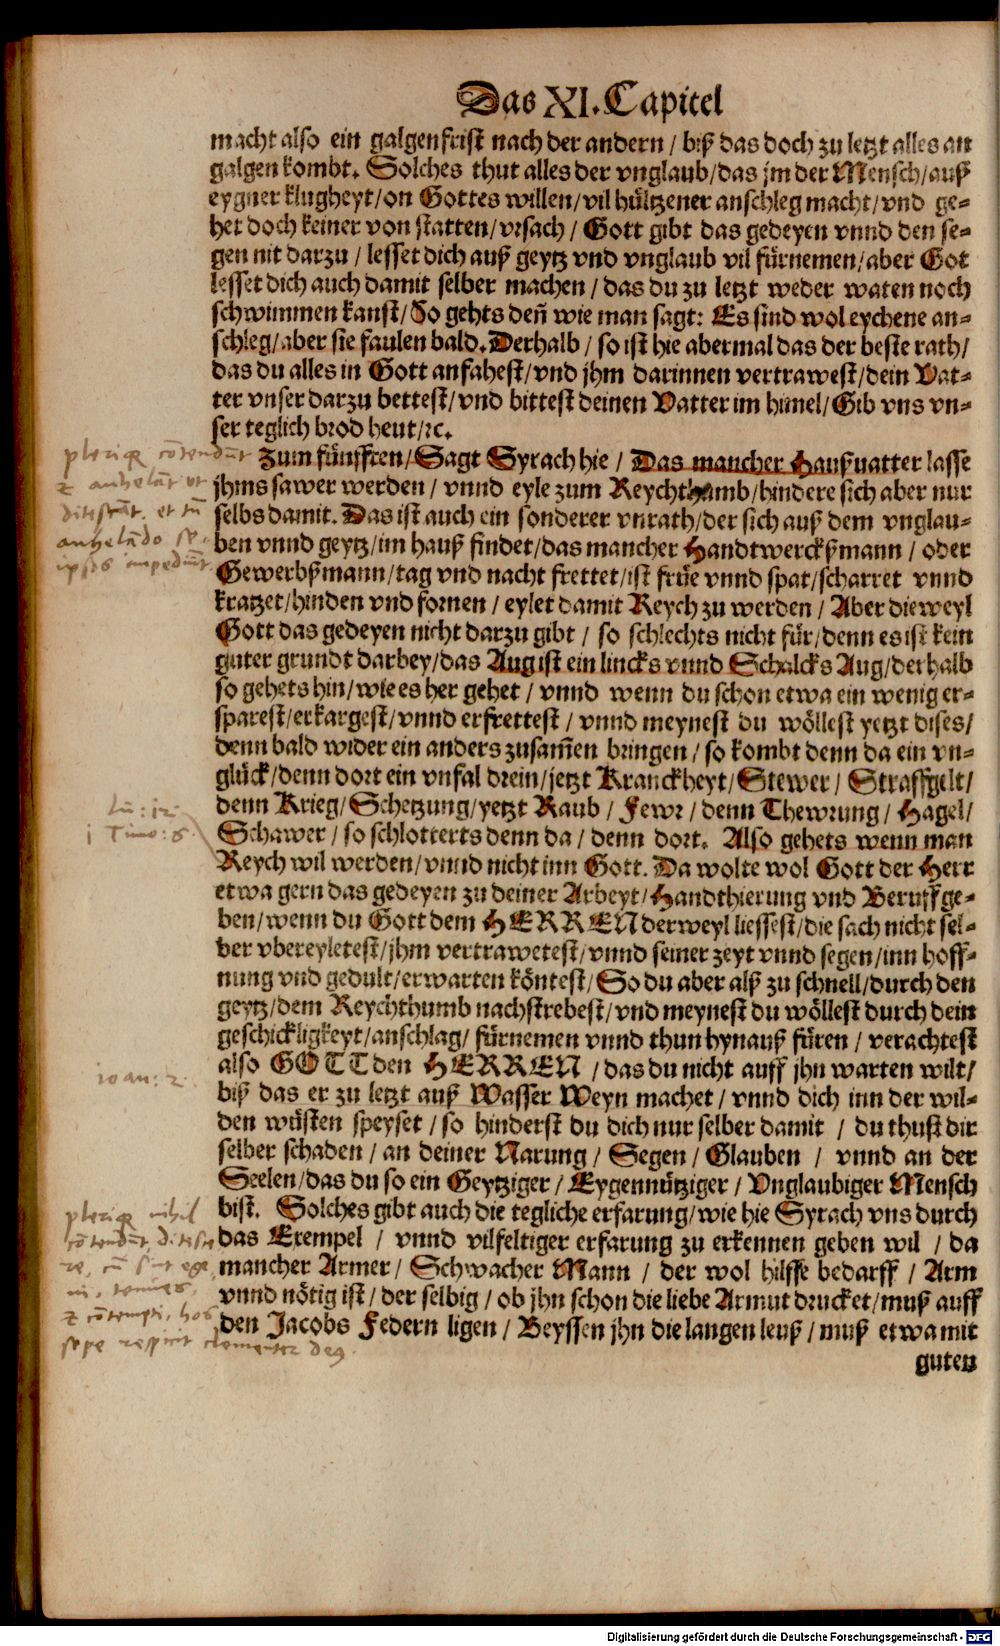 Das XI. Capitel
macht also ein galgenfrist nach der andern / biß das doch zu letzt alles an
galgen kombt. Solches thut alles der vnglaub / das jm der Mensch / auß
eygner klugheyt / on Gottes willen / vil hültzener anschleg macht / vnd ge-
het doch keiner von statten / vrsach / Gott gibt das gedeyen vnnd den se-
gen nit darzu / lesset dich auß geytz vnd vnglaub vil fürnemen / aber Got
lesset dich auch damit selber machen / das du zu letzt weder waten noch
schwimmen kanst / So gehts deñ wie man sagt: Es sind wol eychene an-
schleg / aber sie faulen bald. Derhalb / so ist hie abermal das der beste rath /
das du alles in Gott anfahest / vnd jhm darinnen vertrawest / dein Vat-
ter vnser darzu bettest / vnd bittest deinen Vatter im himel / Gib vns vn-
ser teglich brod heut / ꝛc.
pleriqꝫ cōtendūt
Zum fünfften / Sagt Syrach hie / Das mancher Haußuatter lasse
⁊ anhelāt ut
jhms sawer werden / vnnd eyle zum Reychthumb / hindere sich aber nur
ditescāt. et tñ
selbs damit. Das ist auch ein sonderer vnrath / der sich auß dem vnglau-
anhelādo se-
ben vnnd geytz / im hauß findet / das mancher Handtwerckßmann / oder
ipsos impediūt
Gewerbßmann / tag vnd nacht frettet / ist früe vnnd spat / scharret vnnd
kratzet / hinden vnd fornen / eylet damit Reych zu werden / Aber dieweyl
Gott das gedeyen nicht darzu gibt / so schlechts nicht für / denn es ist kein
guter grundt darbey / das Aug ist ein lincks vnnd Schalcks Aug / derhalb
so gehets hin / wie es her gehet / vnnd wenn du schon etwa ein wenig er-
sparest / erkargest / vnnd erfrettest / vnnd meynest du wöllest yetzt dises /
denn bald wider ein anders zusam̄en bringen / so kombt denn da ein vn-
glück / denn dort ein vnfal drein / jetzt Kranckheyt / Stewer / Straffgelt /
Lu: 12:
denn Krieg / Schetzung / yetzt Raub / Fewr / denn Thewrung / Hagel /
1 Timo: 6.
Schawer / so schlotterts denn da / denn dort. Also gehets wenn man
Reych wil werden / vnnd nicht inn Gott. Da wolte wol Gott der Herr
etwa gern das gedeyen zu deiner Arbeyt / Handthierung vnd Beruff ge-
ben / wenn du Gott dem HERREN derweyl liessest / die sach nicht sel-
ber vbereyletest / jhm vertrawetest / vnnd seiner zeyt vnnd segen / inn hoff-
nung vnd gedult / erwarten köntest / So du aber alß zu schnell / durch den
geytz / dem Reychthumb nachstrebest / vnd meynest du wöllest durch dein
geschickligkeyt / anschlag / fürnemen vnnd thun hynauß füren / verachtest
also GOTT den HERREN / das du nicht auff jhn warten wilt /
Ioan: 2.
biß das er zu letzt auß Wasser Weyn machet / vnnd dich inn der wil-
den wüsten speyset / so hinderst du dich nur selber damit / du thust dir
selber schaden / an deiner Narung / Segen / Glauben / vnnd an der
Seelen / das du so ein Geytziger / Eygennütziger / Vnglaubiger Mensch
pleriqꝫ nihil
bist. Solches gibt auch die tegliche erfarung / wie hie Syrach vns durch
cōtendūt ditesce
das Exempel / vnnd vilfeltiger erfarung zu erkennen geben wil / da
re, cū sint ege
mancher Armer / Schwacher Mann / der wol hilffe bedarff / Arm
ni, tenues,
vnnd nötig ist / der selbig / ob jhn schon die liebe Armut drucket / muß auff
⁊ cōtempti, hos
den Jacobs Federn ligen / Beyssen jhn die langen leuß / muß etwa mit
sepe respicit clementer deꝰ.
guten
Digitalisierung gefördert durch die Deutsche Forschungsgemeinschaft - DFG